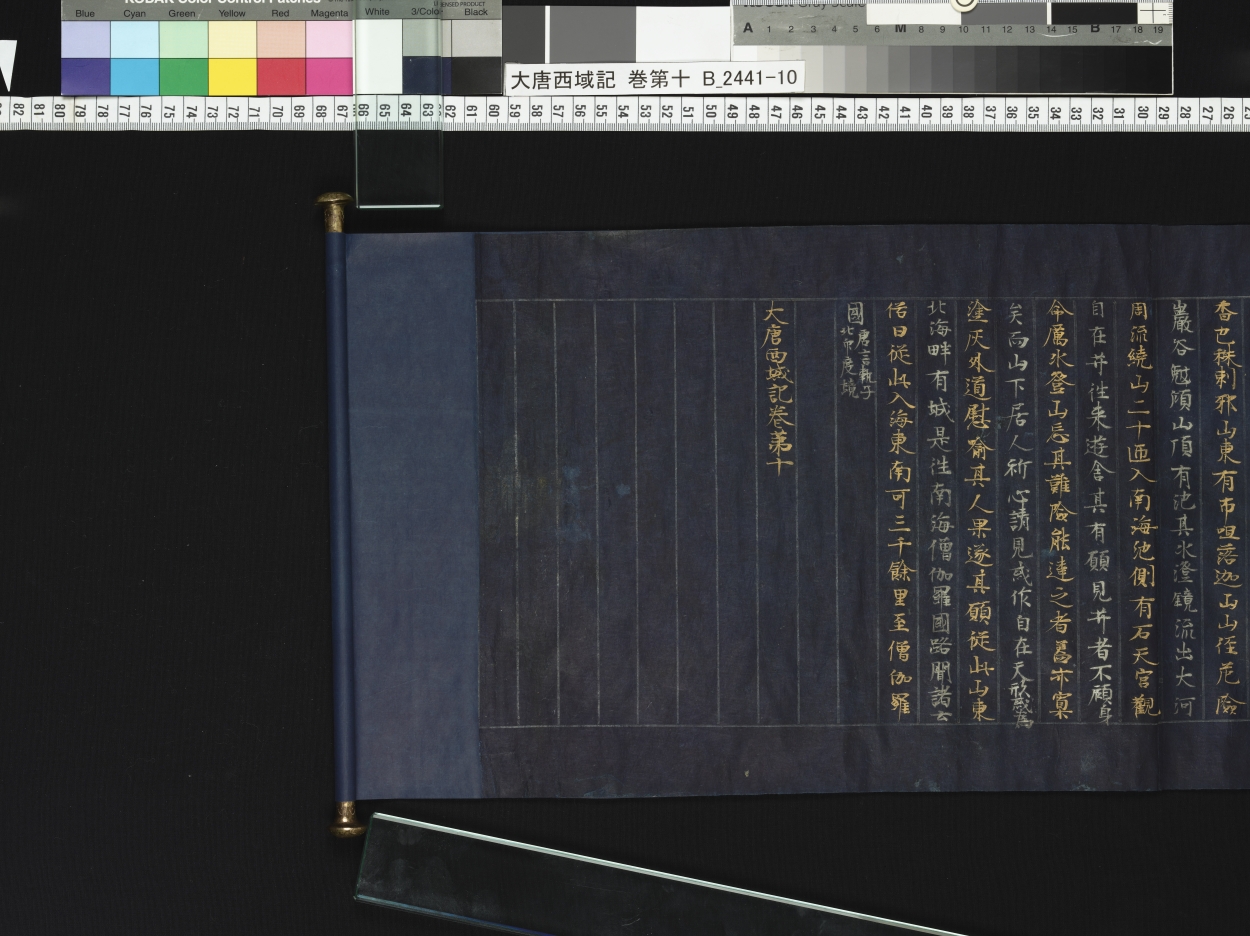 KODAK Color Control Patches
LICENSED PRODUCT
Blue Cyan Green Yellow Red Magenta White 3/Color Black
A 1 2 3 4 5 6 M 8 9 10 11 12 13 14 15 B 17 18 19
大唐西域記 巻第十 B_2441-10
82 81 80 79 78 77 76 75 74 73 72 71 70 69 68 67 66 65 64 63 62 61 60 59 58 57 56 55 54 53 52 51 50 49 48 47 46 45 44 43 42 41 40 39 38 37 36 35 34 33 32 31 30 29 28 27 26
香也秣剌邪山東有布呾落迦山山徑危險
巖谷敧傾山頂有池其水澄鏡流出大河
周流繞山二十匝入南海池側有石天宮觀
自在𦬇往来遊舍其有願見𦬇者不顧身
命厲水登山忘其難險能達之者蓋亦寡
矣而山下居人祈心請見或作自在天形或為
塗灰外道慰喻其人果遂其願從此山東
北海畔有城是往南海僧伽羅國路聞諸土
俗曰從此入海東南可三千餘里至僧伽羅
國唐言執子
北印度境
大唐西域記卷第十